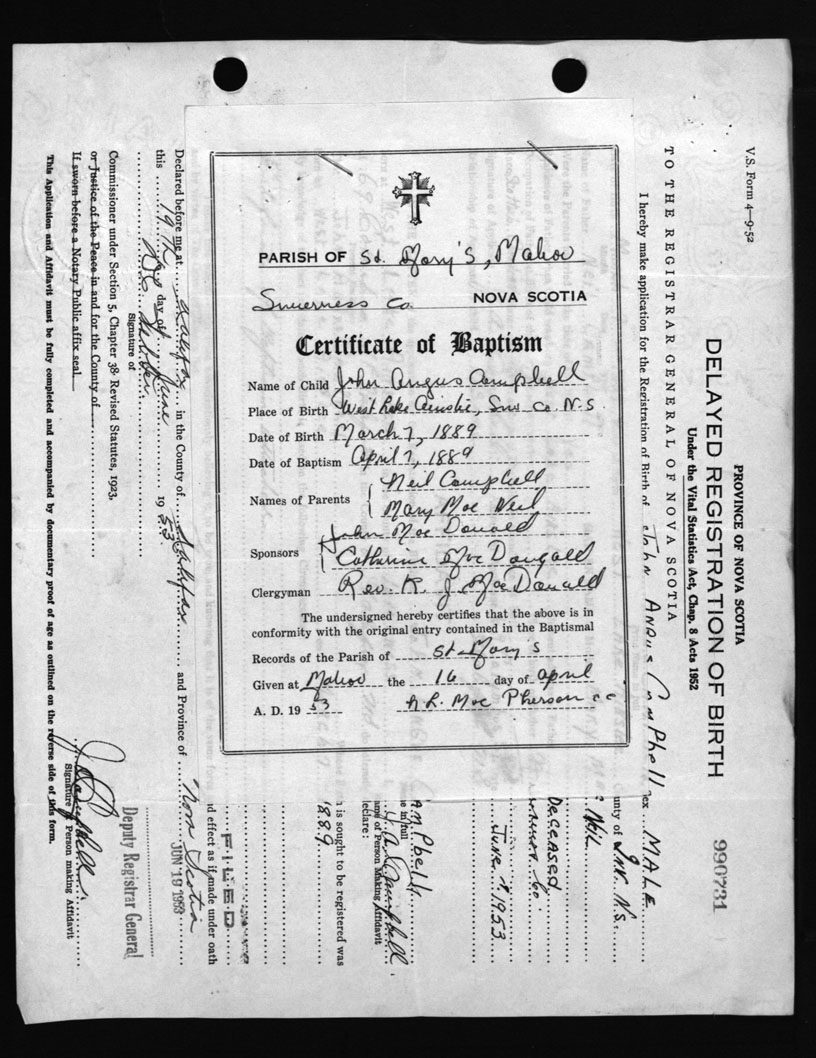 PARISH OF St. Mary's, Mabou
Inverness Co. NOVA SCOTIA
Certificate of Baptism
Name of Child John Angus Campbell
Place of Birth West Lake Ainslie, Inv. Co. N.S.
Date of Birth March 7, 1889
Date of Baptism April 7, 1889
Names of Parents Neil Campbell
Mary Mac Neil
Sponsors John Mac Donald
Catherine MacDougald
Clergyman Rev. K. J. MacDonald
The undersigned hereby certifies that the above is in
conformity with the original entry contained in the Baptismal
Records of the Parish of St. Mary's
Given at Mabou the 16 day of April
A. D. 1953 A. L. Mac Pherson cc
V.S. Form 4—9-52
PROVINCE OF NOVA SCOTIA
DELAYED REGISTRATION OF BIRTH 990731
Under the Vital Statistics Act, Chap. 8 Acts 1952
TO THE REGISTRAR GENERAL OF NOVA SCOTIA
I hereby make application for the Registration of Birth of John Angus Campbell ex MALE
ounty of Inv. N.S.
Neil
Deceased
June 9, 1953
ampbell
e in full
J. A. Campbell
ame of Person Making Affidavit
eclare:
h is sought to be registered was
1889
FILED
d effect as if made under oath
Declared before me at Halifax in the County of Halifax and Province of Nova Scotia
this 19th day of June 1953 JUN 19 1953
Signature of
Commissioner under Section 5, Chapter 38 Revised Statutes, 1923,
or Justice of the Peace in and for the County of
If sworn before a Notary Public affix seal.
Deputy Registrar General
J A Campbell
Signature of Person making Affidavit
This Application and Affidavit must be fully completed and accompanied by documentary proof of age as outlined on the reverse side of this form.